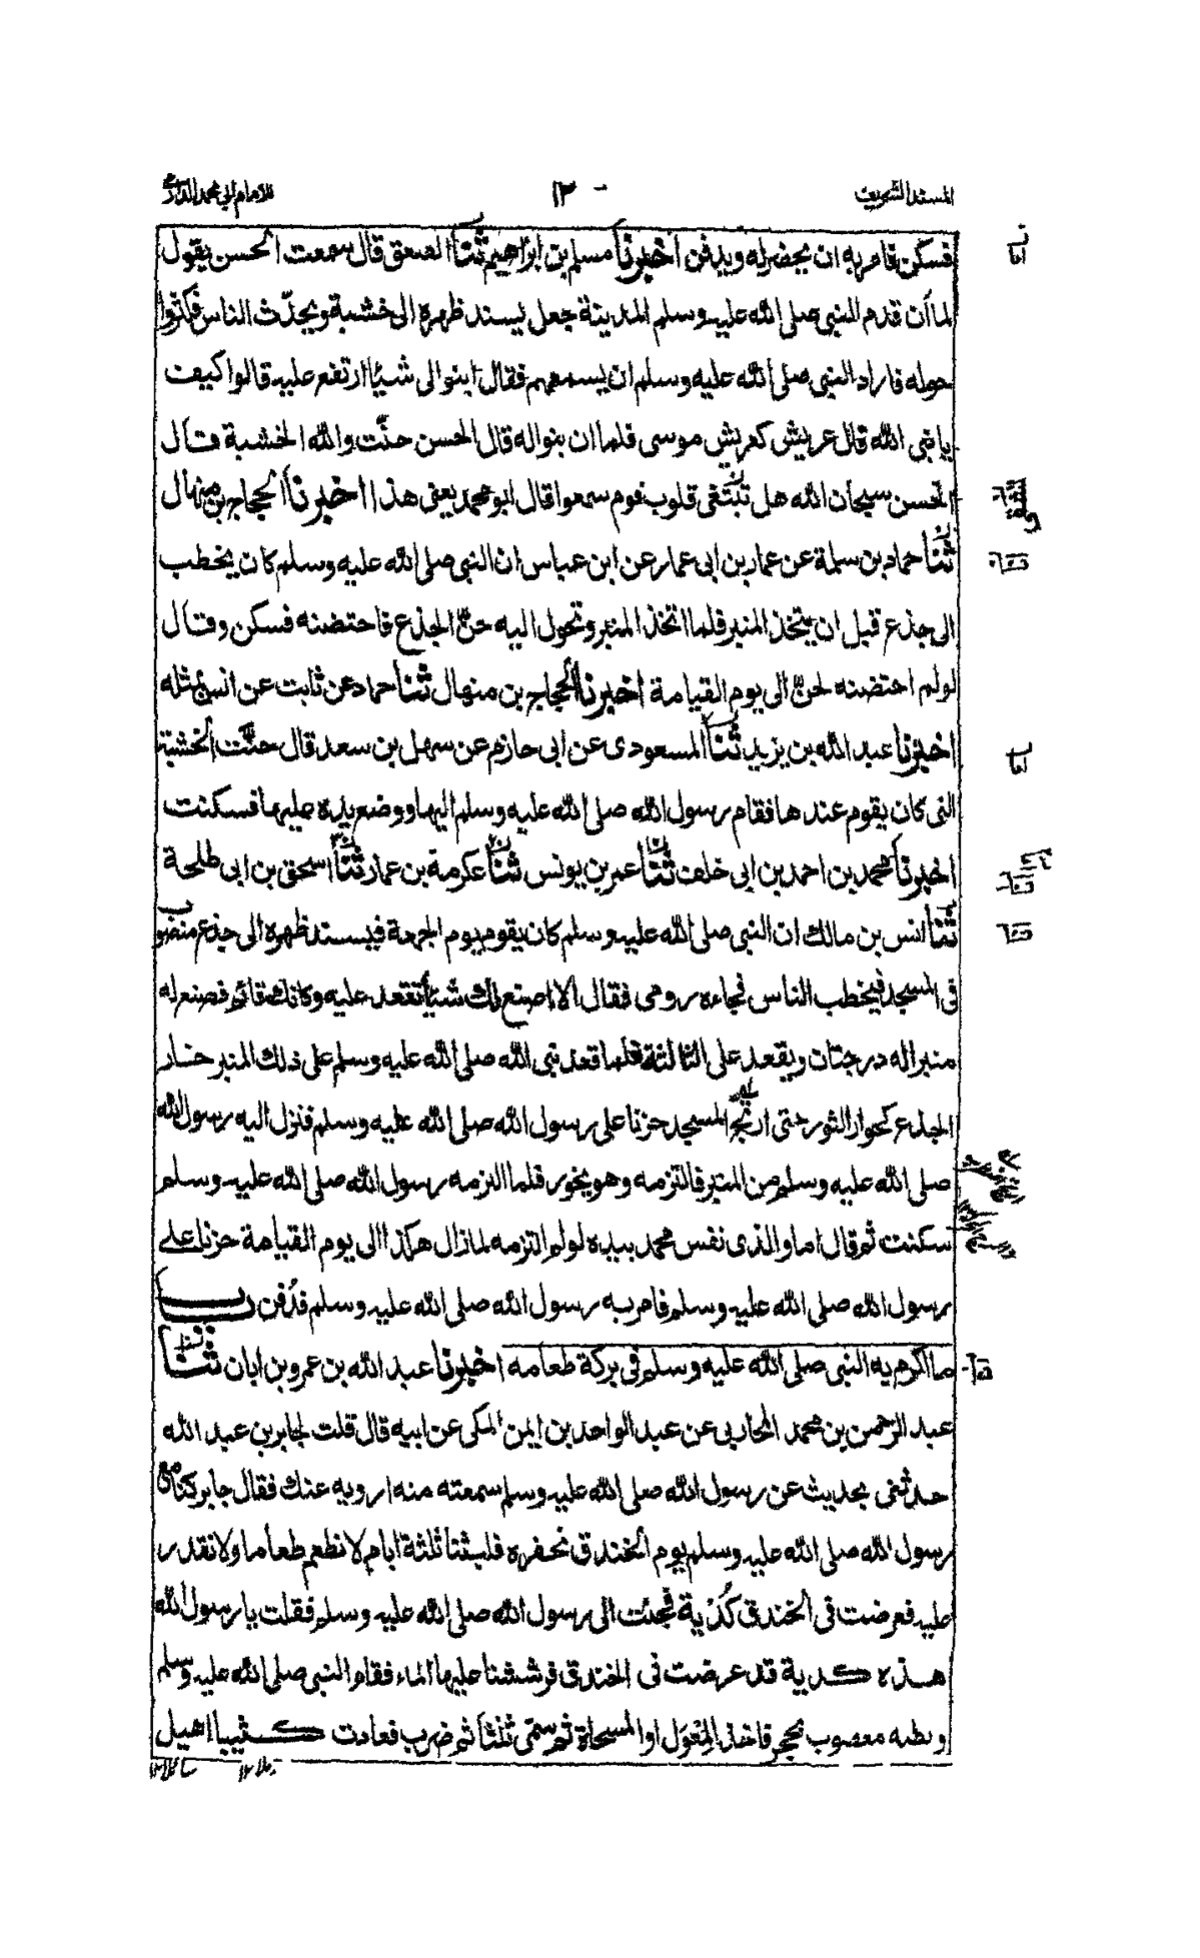 المسند الشريف ١٢ للامام ابي محمد الدارمي
فسكن فامر به ان يحفر له ويدفن اخبرنا مسلم بن ابراهيم ثنا الصعق قال سمعت الحسن يقول
لما أن قدم النبي صلى الله عليه وسلم المدينة جعل يسند ظهره الى خشبة ويحدّث الناس فكثروا
حوله فاراد النبي صلى الله عليه وسلم ان يسمعهم فقال ابنوا لى شيئا ارتفع عليه قالوا كيف
يا نبي الله قال عريش كعريش موسى فلما ان بنوا له قال الحسن حنّت والله الخشبة قال
الحسن سبحان الله هل تبتغى قلوب قوم سمعوا قال ابو محمد يعنى هذا اخبرنا الحجاج بن منهال
ثنا حماد بن سلمة عن عمار بن ابى عمار عن ابن عباس ان النبي صلى الله عليه وسلم كان يخطب
الى جذع قبل ان يتخذ المنبر فلما اتخذ المنبر وتحول اليه حنّ الجذع فاحتضنه فسكن وقال
لولم احتضنه لحنّ الى يوم القيامة اخبرنا الحجاج بن منهال ثنا حماد عن ثابت عن انس بمثله
اخبرنا عبد الله بن يزيد ثنا المسعودى عن ابى حازم عن سهل بن سعد قال حنّت الخشبة
التى كان يقوم عندها فقام رسول الله صلى الله عليه وسلم اليها ووضع يده عليها فسكنت
اخبرنا محمد بن احمد بن ابى خلف ثنا عمر بن يونس ثنا عكرمة بن عمار ثنا اسحق بن ابى طلحة
ثنا انس بن مالك ان النبي صلى الله عليه وسلم كان يقوم يوم الجمعة فيسند ظهره الى جذع منصوب
فى المسجد فيخطب الناس فجاءه رومى فقال الا اصنع لك شيئا تقعد عليه وكانك قائم فصنع له
منبرا له درجتان ويقعد على الثالثة فلما قعد نبى الله صلى الله عليه وسلم على ذلك المنبر خار
الجذع كخوار الثور حتى ارتج المسجد حزنا على رسول الله صلى الله عليه وسلم فنزل اليه رسول الله
صلى الله عليه وسلم من المنبر فالتزمه وهو يخور فلما التزمه رسول الله صلى الله عليه وسلم
سكنت ثم قال اما والذى نفس محمد بيده لولم التزمه لمازال هكذا الى يوم القيامة حزنا على
رسول الله صلى الله عليه وسلم فامر به رسول الله صلى الله عليه وسلم فدُفن باب
ما اكرم به النبى صلى الله عليه وسلم فى بركة طعامه اخبرنا عبد الله بن عمرو بن ابان ثنا
عبد الرحمن بن محمد المحاربى عن عبد الواحد بن ايمن المكى عن ابيه قال قلت لجابر بن عبد الله
حدثنى بحديث عن رسول الله صلى الله عليه وسلم سمعته منه ارويه عنك فقال جابر كنا مع
رسول الله صلى الله عليه وسلم يوم الخندق نحفره فلبثنا ثلثة ايام لا نطعم طعاما ولا نقدر
عليه فعرضت فى الخندق كُدْية فجئت الى رسول الله صلى الله عليه وسلم فقلت يا رسول الله
هذه كدية قد عرضت فى الخندق فرششنا عليها الماء فقام النبى صلى الله عليه وسلم
وبطنه معصوب بحجر فاخذ المِعْوَل او المسحاة ثم سمّى ثلثا ثم ضرب فعادت كثيبا اهيل